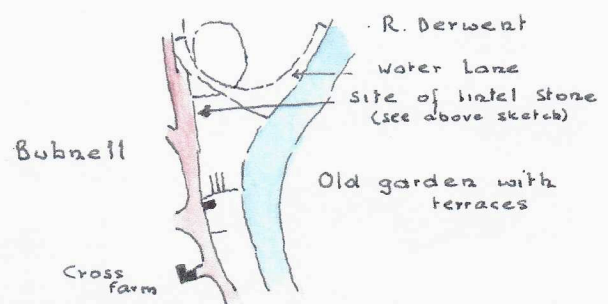 R. Derwent
Water Lane
Site of lintel stone
(see above sketch)
Bubnell
Old garden with
terraces
Cross
farm